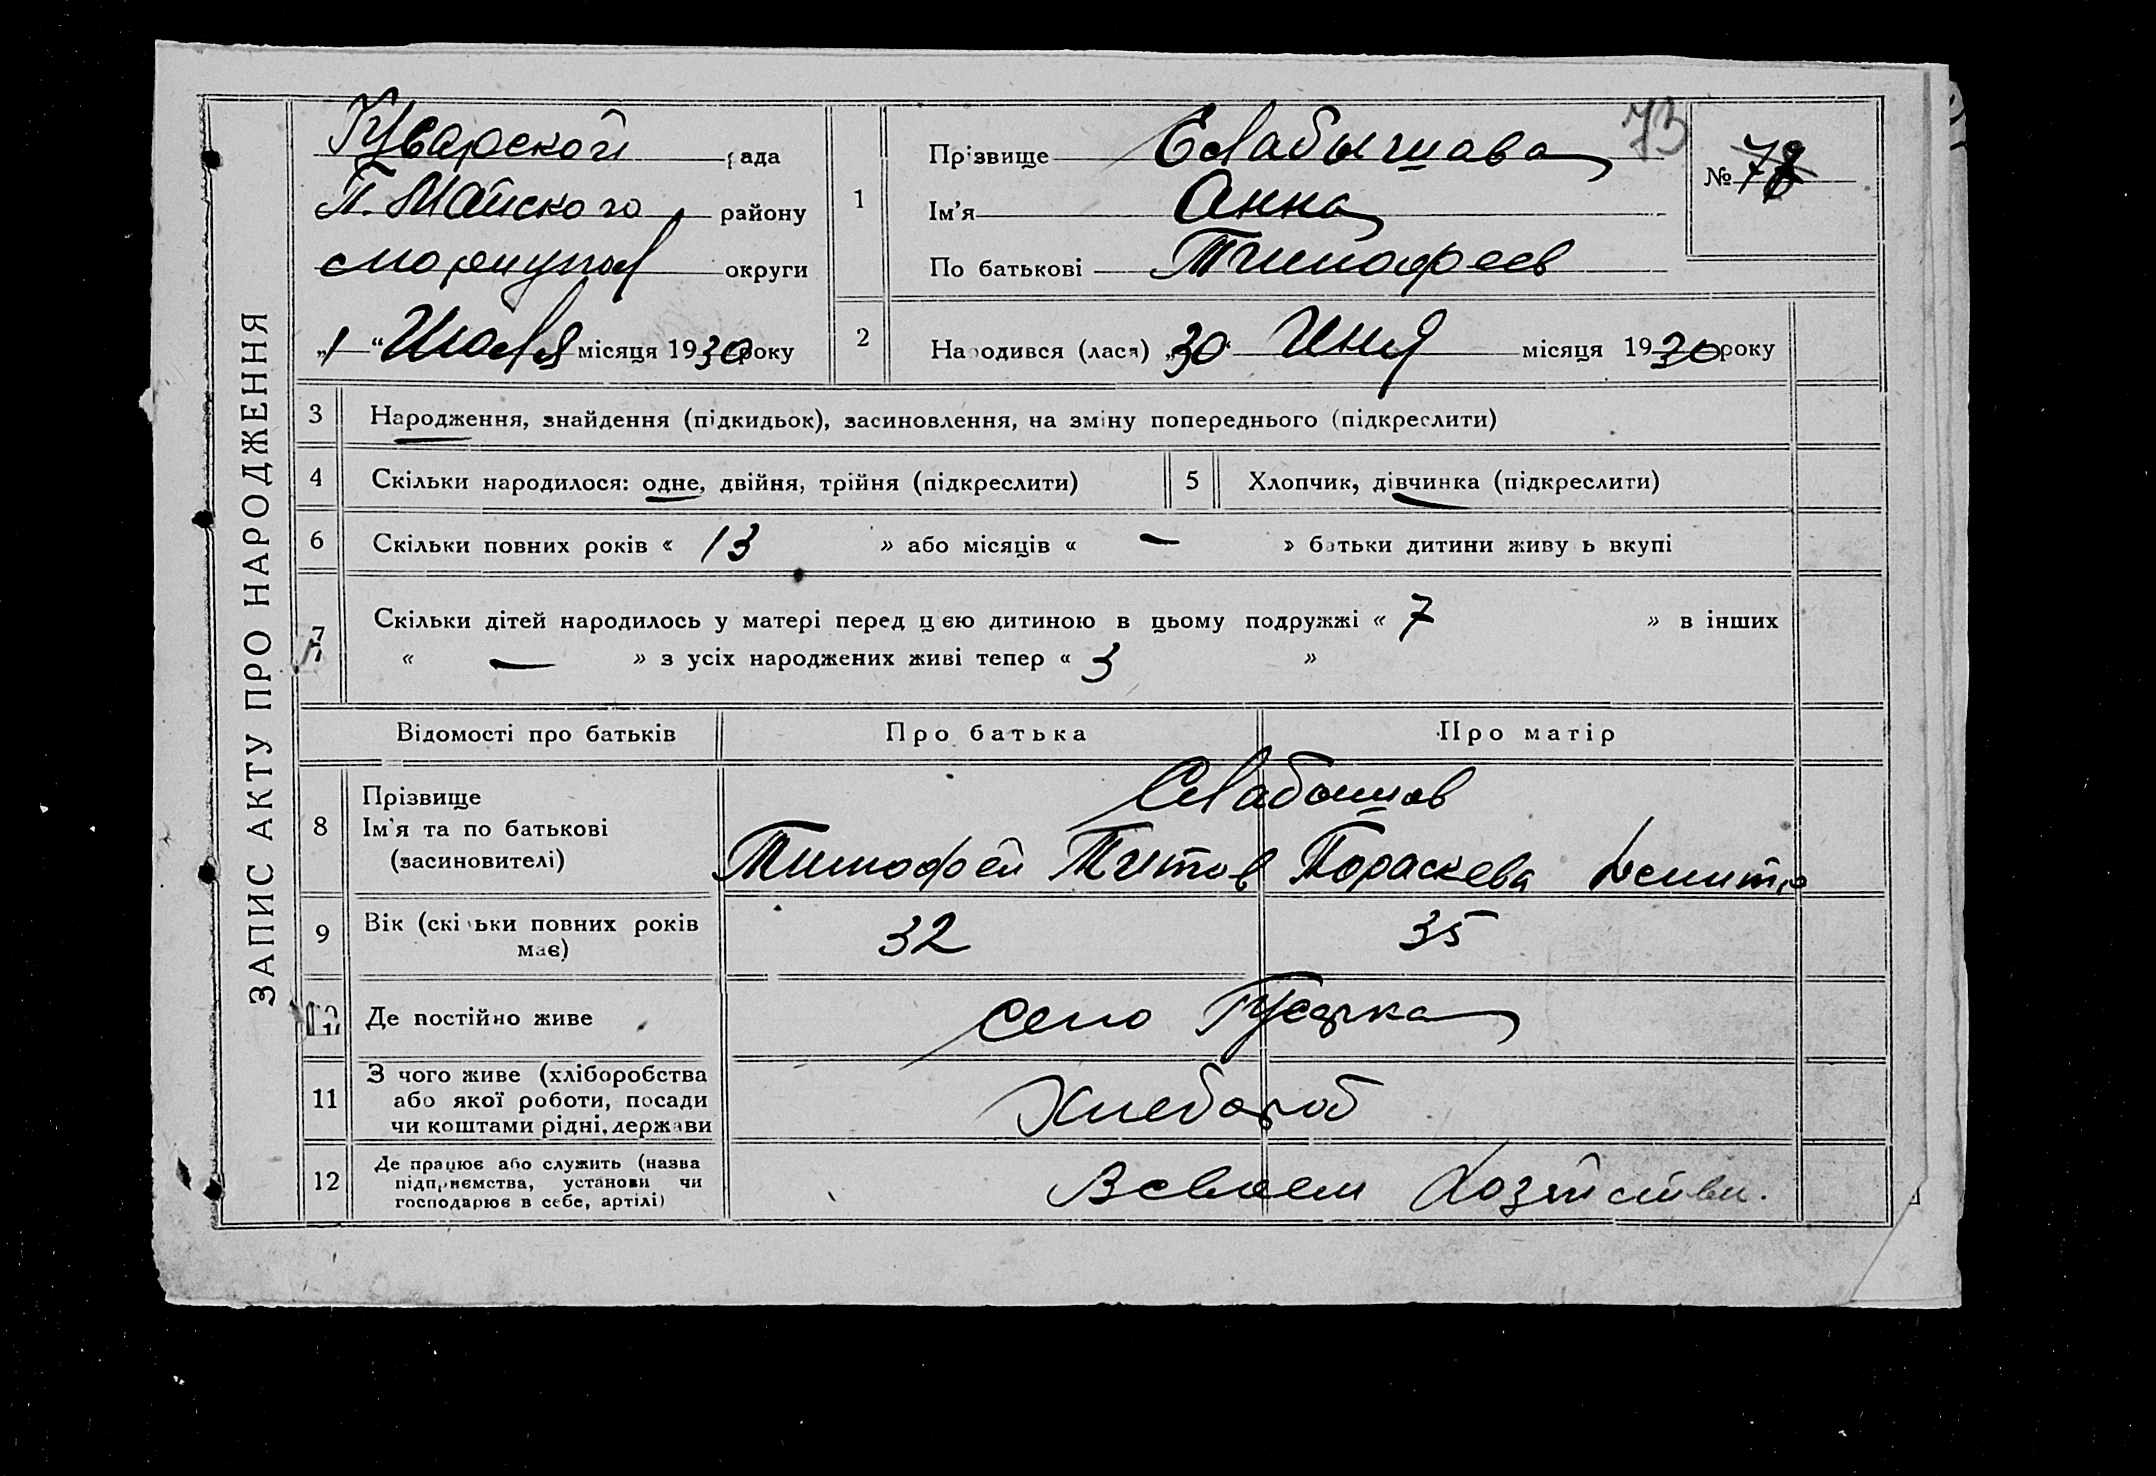 ЗАПИС АКТУ ПРО НАРОДЖЕННЯ
рада
П. Майского району
округи
„1“ Июля місяця 1930 року
1
Прізвище Елабышава
Ім’я Анна
По батькові Тимофеев
73
№ 78
2
Народився (лася) „30“ Июня місяця 1930 року
3 Народження, знайдення (підкидьок), засиновлення, на зміну попереднього (підкреслити)
4 Скільки народилося: одне, двійня, трійня (підкреслити) 5 Хлопчик, дівчинка (підкреслити)
6 Скільки повних років « 13 » або місяців « — » батьки дитини живуть вкупі
7 Скільки дітей народилось у матері перед цією дитиною в цьому подружжі « 7 » в інших
« — » з усіх народжених живі тепер « 3 »
Відомості про батьків Про батька Про матір
8 Прізвище Елабышов
Ім’я та по батькові
(засиновителі) Тимофей Титов Параскева
9 Вік (скільки повних років
має) 32 35
10 Де постійно живе село Гусарка
11 З чого живе (хліборобства
або якої роботи, посади
чи коштами рідні, держави Хлебороб
12 Де працює або служить (назва
підприємства, установи чи
господарює в себе, артілі) В своем хозяйстве.